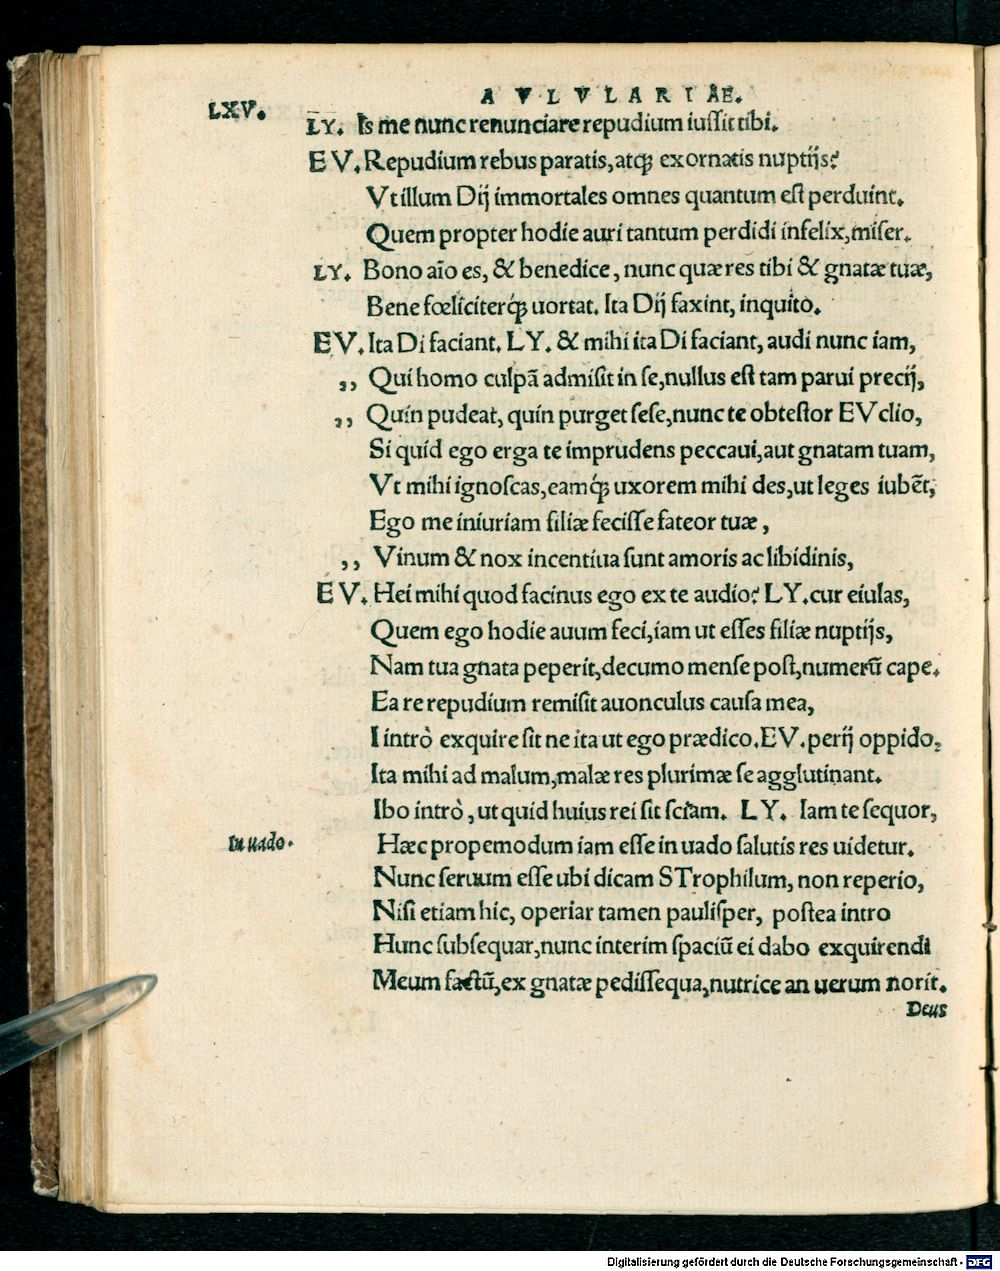 AVLVLARIAE.
LXV.
LY. Is me nunc renunciare repudium iuſſit tibi.
EV. Repudium rebus paratis, atq; exornatis nuptijs?
Vt illum Dij immortales omnes quantum eſt perduint.
Quem propter hodie auri tantum perdidi infelix, miſer.
LY. Bono aĩo es, & benedice, nunc quæ res tibi & gnatæ tuæ,
Bene fœliciterq́; uortat. Ita Dij faxint, inquito.
EV. Ita Di faciant. LY. & mihi ita Di faciant, audi nunc iam,
,, Qui homo culpã admiſit in ſe, nullus eſt tam parui precij,
,, Quin pudeat, quin purget ſeſe, nunc te obteſtor EVclio,
Si quid ego erga te imprudens peccaui, aut gnatam tuam,
Vt mihi ignoſcas, eamq́; uxorem mihi des, ut leges iubẽt,
Ego me iniuriam filiæ feciſſe fateor tuæ,
,, Vinum & nox incentiua ſunt amoris ac libidinis,
EV. Hei mihi quod facinus ego ex te audio? LY. cur eiulas,
Quem ego hodie auum feci, iam ut eſſes filiæ nuptijs,
Nam tua gnata peperit, decumo menſe poſt, numerũ cape.
Ea re repudium remiſit auonculus cauſa mea,
I intrò exquire ſit ne ita ut ego prædico. EV. perij oppido,
Ita mihi ad malum, malæ res plurimæ ſe agglutinant.
Ibo intrò, ut quid huius rei ſit ſciam. LY. Iam te ſequor,
In uado.
Hæc propemodum iam eſſe in uado ſalutis res uidetur.
Nunc ſeruum eſſe ubi dicam STrophilum, non reperio,
Niſi etiam hic, operiar tamen pauliſper, poſtea intro
Hunc ſubſequar, nunc interim ſpaciũ ei dabo exquirendi
Meum factũ, ex gnatæ pediſſequa, nutrice an uerum norit.
Deus
Digitalisierung gefördert durch die Deutsche Forschungsgemeinschaft - DFG